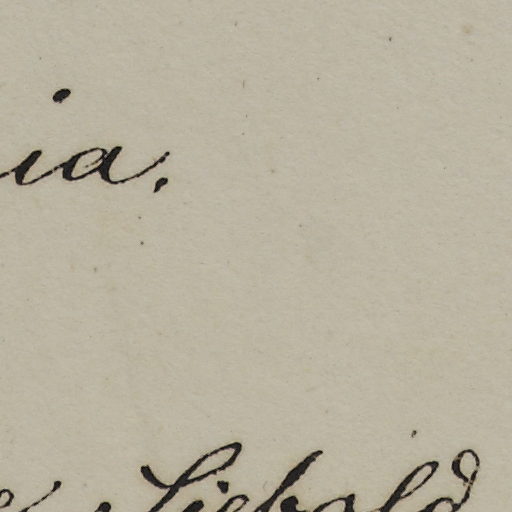 ia.
Siebold